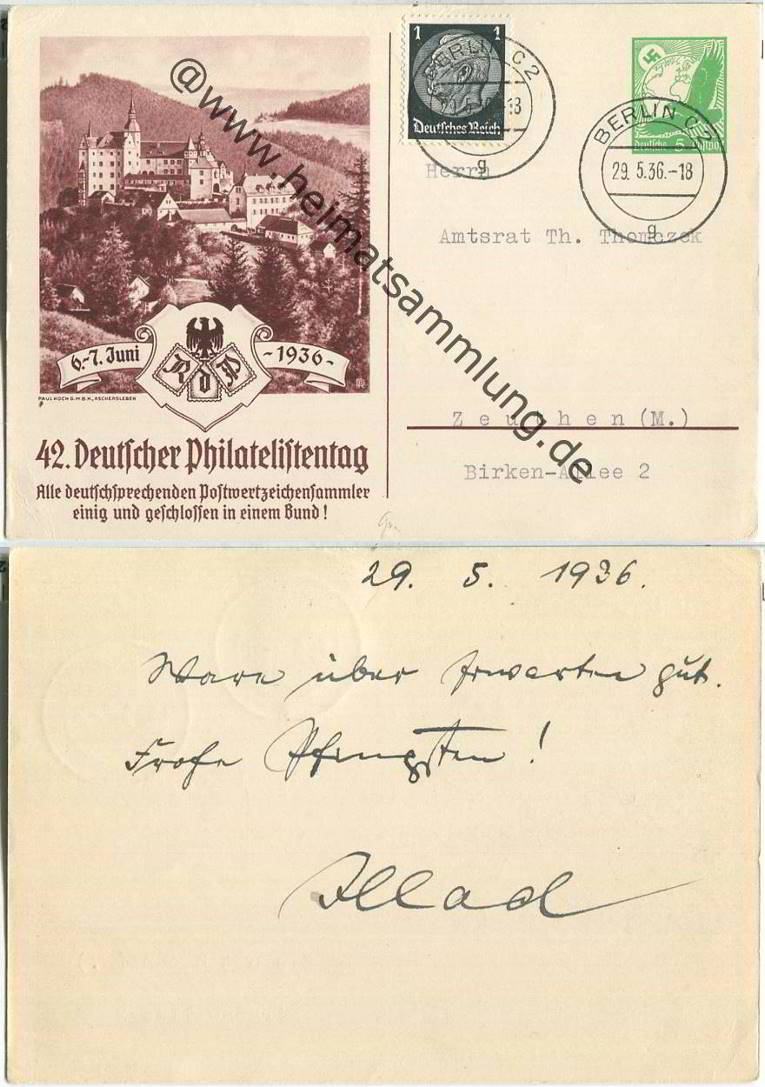 1 1
Deutsches Reich
BERLIN C2
g
Deutsche
BERLIN C2
29. 5. 36.-18
g
@www.heimatsammlung.de
Herrn
Amtsrat Th. Thomczek
Zeuthen (M.)
Birken-Allee 2
6.-7. Juni - 1936 -
RdP
PAUL KOCH G.M.B.H., ASCHERSLEBEN
42. Deutscher Philatelistentag
Alle deutschsprechenden Postwertzeichensammler
einig und geschlossen in einem Bund!
29. 5. 1936.
Ware über Erwarten gut.
Frohe Pfingsten!